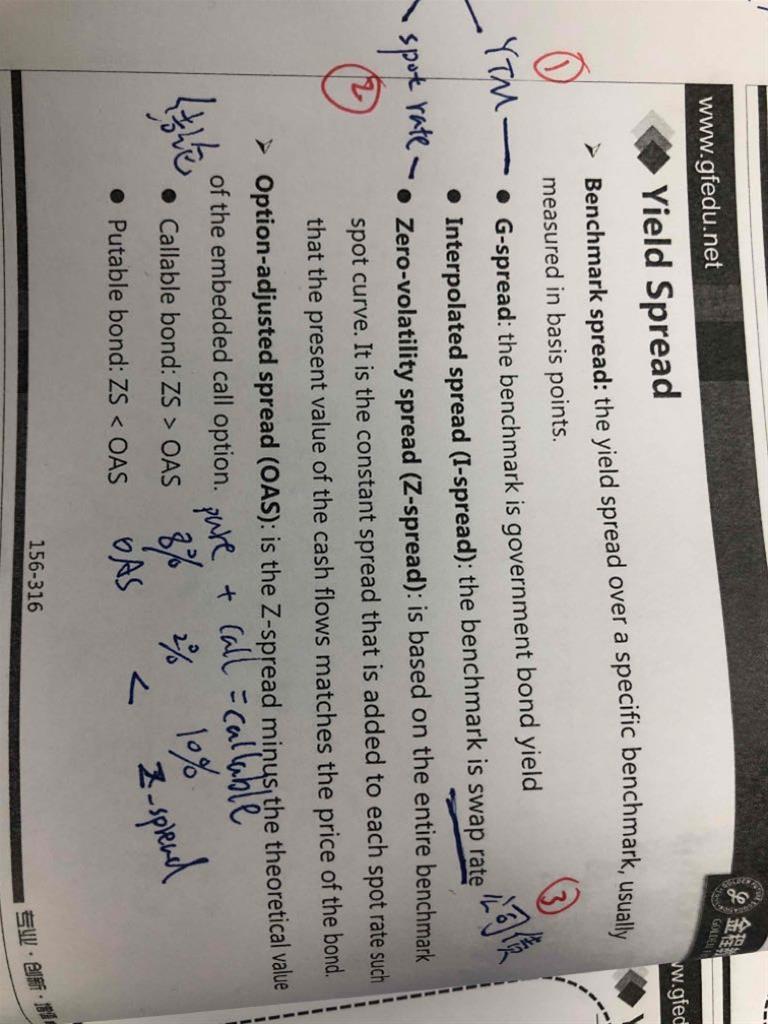 www.gfedu.net
金程
Yield Spread
①
➤ Benchmark spread: the yield spread over a specific benchmark, usually
measured in basis points.
YTM —
• G-spread: the benchmark is government bond yield
③
• Interpolated spread (I-spread): the benchmark is swap rate
spot rate –
• Zero-volatility spread (Z-spread): is based on the entire benchmark
②
spot curve. It is the constant spread that is added to each spot rate such
that the present value of the cash flows matches the price of the bond.
➤ Option-adjusted spread (OAS): is the Z-spread minus the theoretical value
of the embedded call option.
pure + call = callable
• Callable bond: ZS > OAS
8% 2% 10%
• Putable bond: ZS < OAS
OAS < Z-spread
156-316
专业·创新·增值
ww.gfed